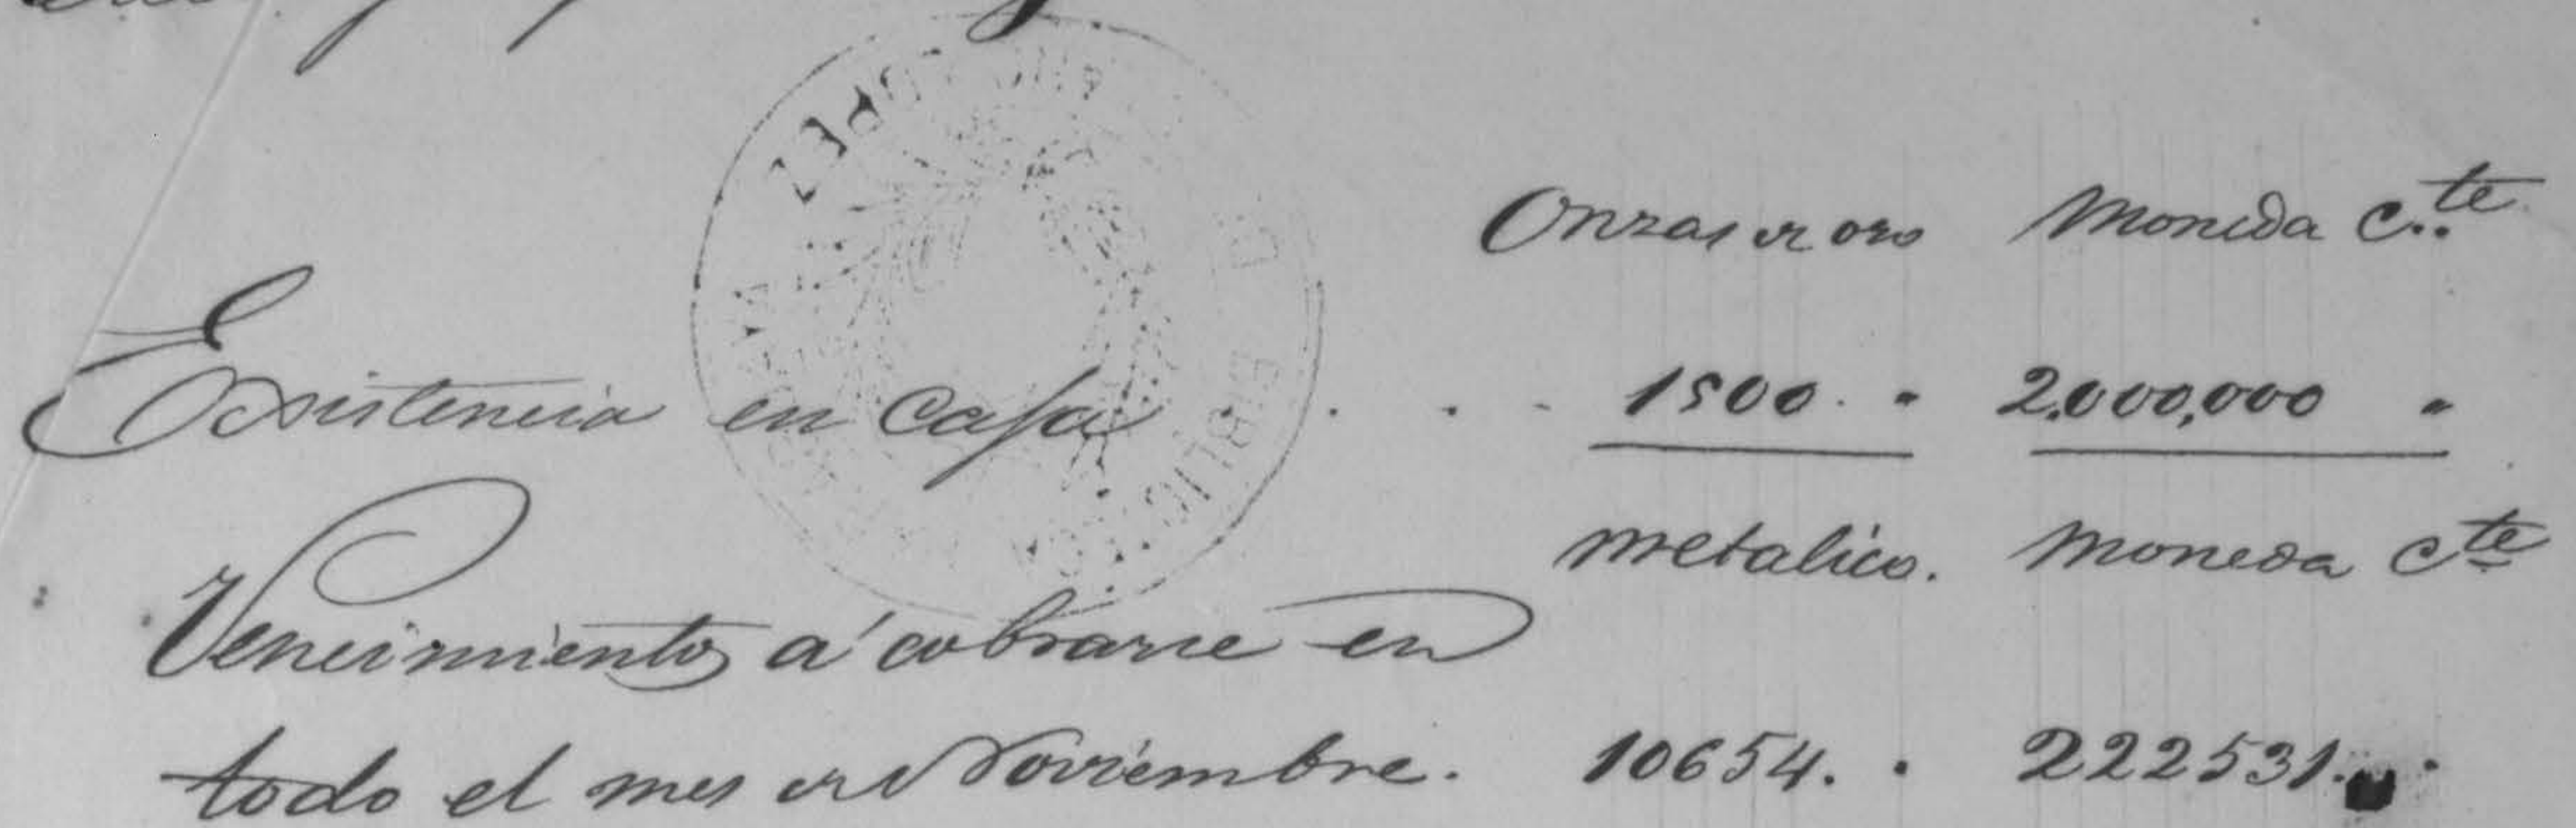 Onzas de oro Moneda c.te
Existencia en Casa . . . 1500. " 2.000,000 "
metalico. Moneda cte
Vencimientos á cobrarse en
todo el mes de Noviembre. 10654. . 222531. .